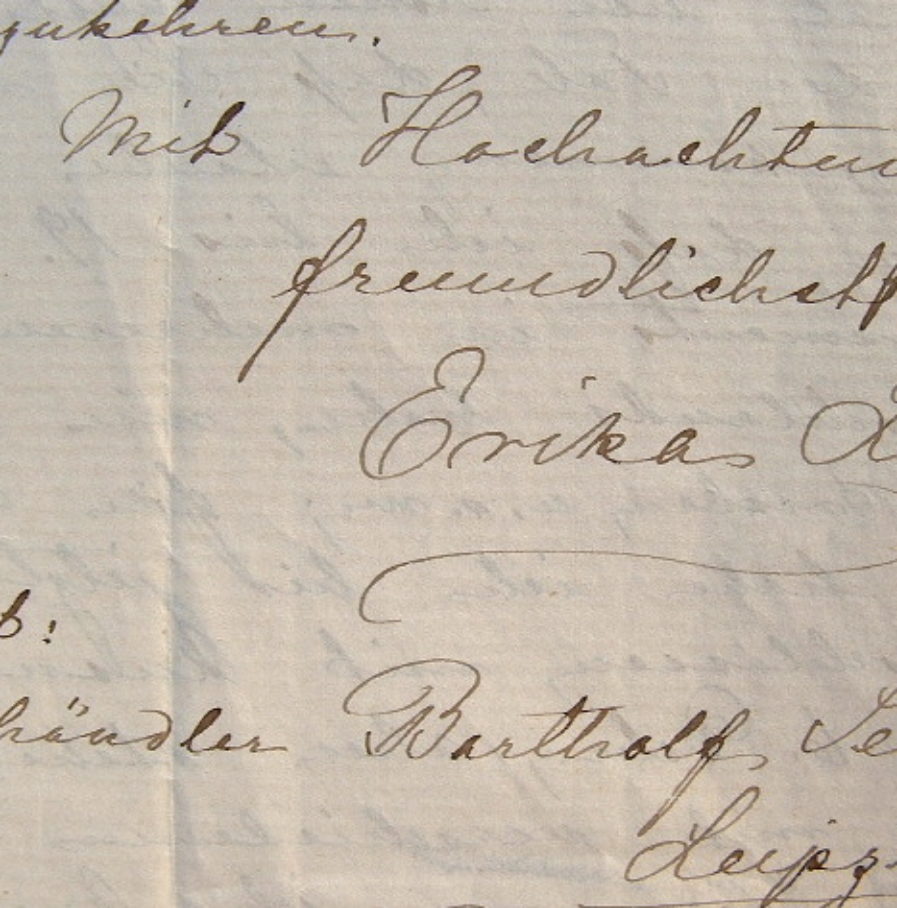 zukehren.
Mit Hochachtun
freundlichst
Erika
händler Bartholf Se
Leipz